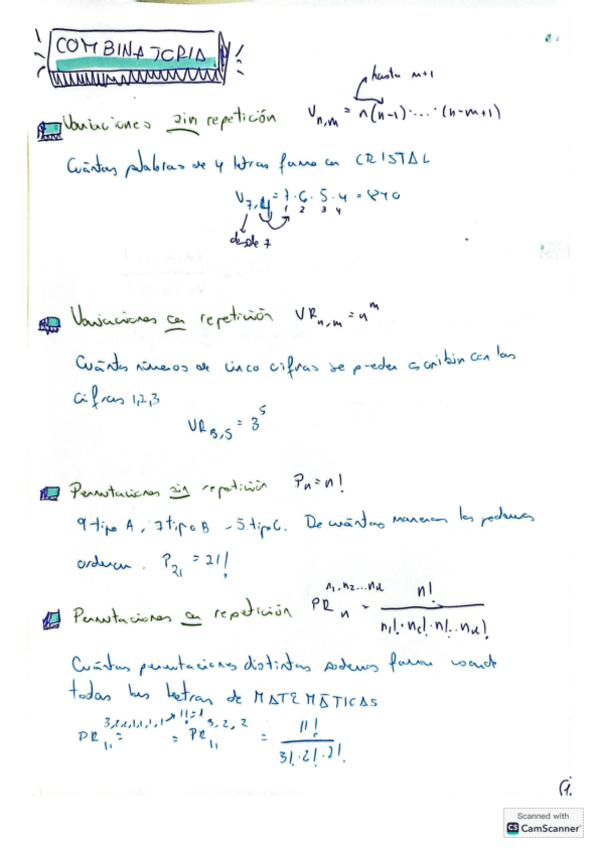 COMBINATORIA
hasta n+1
Variaciones sin repetición V n,m = n(n-1)·...·(n-m+1)
Cuántas palabras de 4 letras formo con CRISTAL
V 7,4 = 7·6·5·4 = 840
1 2 3 4
desde 7
Variaciones con repetición VR n,m = n^m
Cuántos números de cinco cifras se pueden escribir con las
cifras 1,2,3
VR 3,5 = 3^5
Permutaciones sin repetición Pn = n!
9 tipo A, 7 tipo B - 5 tipo C. De cuántas maneras los podemos
ordenar. P21 = 21!
Permutaciones con repetición PR n n1, n2...nd = n! / n1!· ·n!..nd!
Cuántas permutaciones distintas podemos formar usando
todas las letras de MATEMÁTICAS
PR 11 3,2,2,1,1,1,1 → 1!=1 = PR 11 3,2,2 = 11! / 3!·2!·2!
Scanned with
CS CamScanner